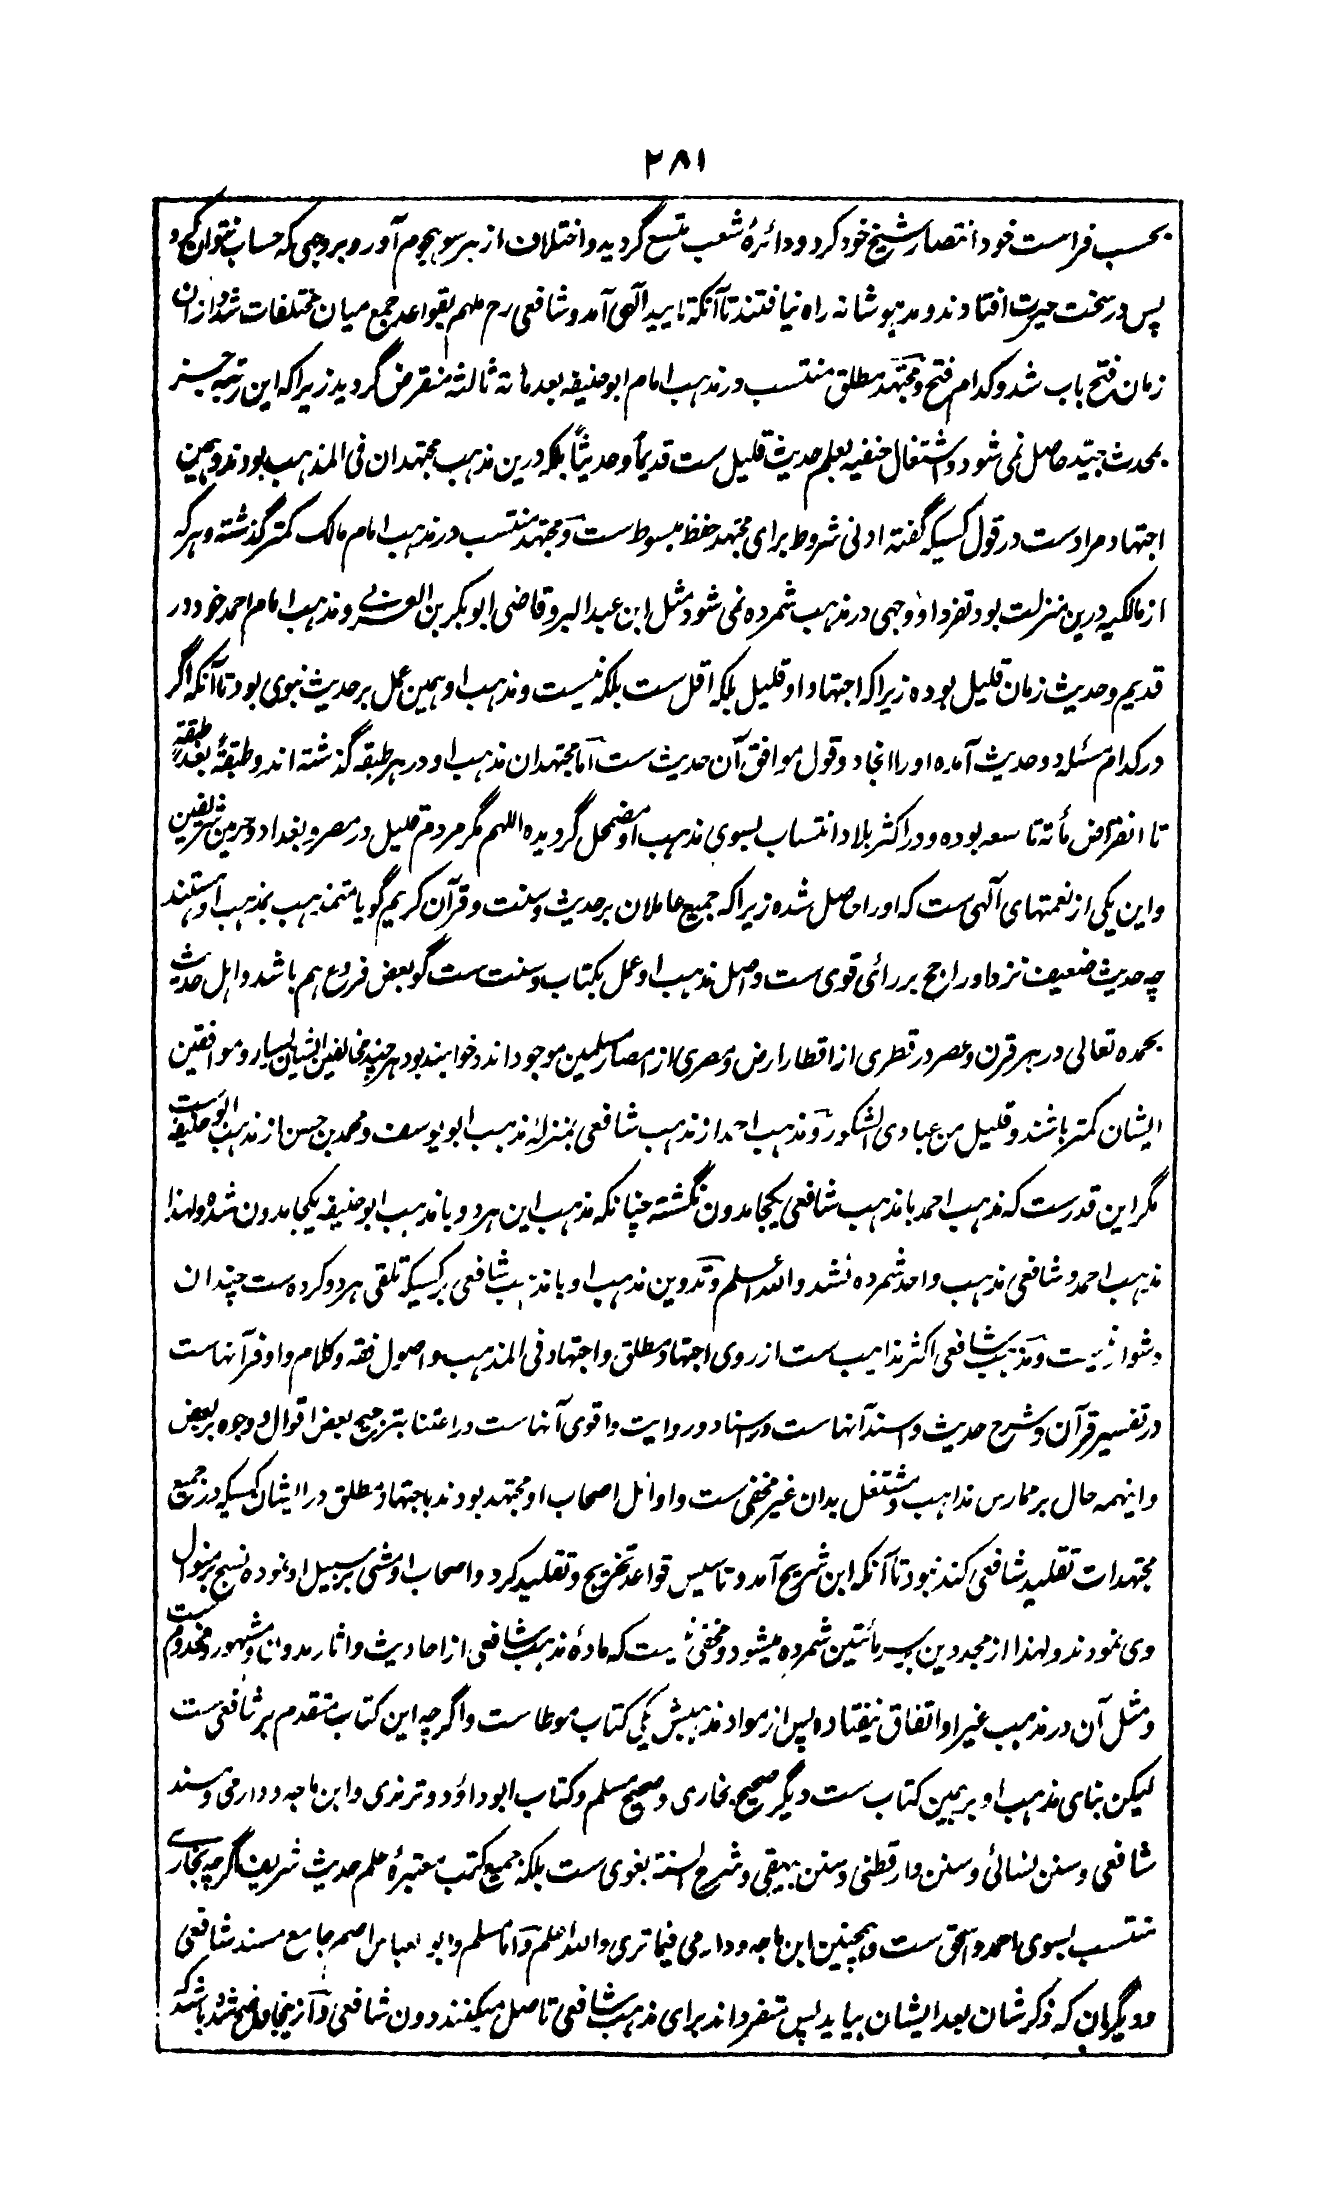 ۲۸۱
بحسب فراست خود انتصار شیخ خود کرد و دائرهٔ شعب متسع گردید و اختلاف از هر سو هجوم آورد بروجهی که حساب نتوان کرد
پس در سخت حیرت افتادند و مدهوشانه راه نیافتند تا آنکه تایید آلهی آمد و شافعی رح ملهم بقواعد جمع میان مختلفات شد و ازان
زمان فتح باب شد و کدام فتح و مجتهد مطلق منتسب در مذهب امام ابوحنیفه بعد مائه ثالثه منقرض گردید زیراکه این رتبه جز
بمحدث جید حاصل نمی شود و اشتغال حنفیه بعلم حدیث قلیل ست قدیماً و حدیثاً بلکه درین مذهب مجتهدان فی المذهب بودند و همین
اجتهاد مراد ست در قول کسیکه گفته ادنی شروط برای مجتهد حفظ مبسوط ست و مجتهد منتسب در مذهب امام مالک کمتر گذشته و هرکه
از مالکیه درین منزلت بود تفرد او وجهی در مذهب شمرده نمی شود مثل ابن عبد البر و قاضی ابوبکر بن العربی و مذهب امام احمد خود در
قدیم و حدیث زمان قلیل بوده زیراکه اجتهاد او قلیل بلکه اقل ست بلکه نیست و مذهب او همین عمل بر حدیث نبوی بود تا آنکه اگر
در کدام مسئله دو حدیث آمده او را اتخاد دو قول موافق آن حدیث ست اما مجتهدان مذهب او در هر طبقه گذشته اند و طبقهٔ بعد طبقة
تا انقراض مأته تاسعه بوده و در اکثر بلاد انتساب بسوی مذهب او مضمحل گردیده اللهم مگر مردم قلیل در مصر و بغداد و حرمین شریفین
و این یکی از نعمتهای آلهی ست که او را حاصل شده زیراکه جمیع عاملان بر حدیث و سنت و قرآن کریم گویا متمذهب بمذهب او هستند
چه حدیث ضعیف نزد او راجح بر رائی قوی ست و اصل مذهب او عمل بکتاب و سنت ست گو بعض فروع هم باشد و اهل حدیث
بحمده تعالی در هر قرن و عصر در قطری از اقطار ارض و مصری از امصار مسلمین موجود اند و خواهند بود هر چند مخالفین ایشان بسیار و موافقین
ایشان کمتر باشند و قلیل من عبادی الشکور و مذهب احمد از مذهب شافعی بمنزلهٔ مذهب ابو یوسف و محمد بن حسن از مذهب ابو حنیفه ست
مگر این قدر ست که مذهب احمد با مذهب شافعی یکجا مدون نگشته چنانکه مذهب این هر دو با مذهب ابو حنیفه یکجا مدون شده و لهذا
مذهب احمد و شافعی مذهب واحد شمرده نشد والله اعلم و تدوین مذهب او با مذهب شافعی بر کسیکه تلقی هر دو کرده ست چندان
دشوار نیست و مذهب شافعی اکثر مذاهب ست از روی اجتهاد مطلق و اجتهاد فی المذهب و اصول فقه و کلام و اوفر آنهاست
در تفسیر قرآن و شرح حدیث و اسند آنها ست در اسناد و روایت و اقوی آنها ست در اعتنا بترجیح بعض اقوال و وجوه بر بعض
و اینهمه حال بر ممارس مذاهب و مشتغل بدان غیر مخفی ست و اوائل اصحاب او مجتهد بودند باجتهاد مطلق در ایشان کسیکه در جمیع
مجتهدات تقلید شافعی کند نبود تا آنکه ابن شریح آمد و تاسیس قواعد تخریج و تقلید کرد و اصحاب او مشی بر سبیل او نموده نسج بر منوال
وی نمودند و لهذا از مجددین بر سر مأتین شمرده میشود و مخفی نیست که مادهٔ مذهب شافعی از احادیث و اثار مدون و مشهور و مخدوم ست
و مثل آن در مذهب غیر او اتفاق نیفتاده پس از مواد مذهبش یکی کتاب موطا ست و اگرچه این کتاب متقدم بر شافعی ست
لیکن بنای مذهب او بر همین کتاب ست دیگر صحیح بخاری و صحیح مسلم و کتاب ابو داؤد و ترمذی و ابن ماجه و دارمی و مسند
شافعی و سنن نسائی و سنن دارقطنی و سنن بیهقی و شرح السنة بغوی ست بلکه جمیع کتب معتبرهٔ علم حدیث شریف اگرچه بخاری
منتسب بسوی احمد و اسحق ست و همچنین ابن ماجه و دارمی فیما تری والله اعلم و اما مسلم و ابو العباس اصم جامع مسند شافعی
و دیگران که ذکر شان بعد ایشان بیاید پس متفرد اند برای مذهب شافعی تاصل میکنند دون شافعی و از ینجا واضح شده باشد که